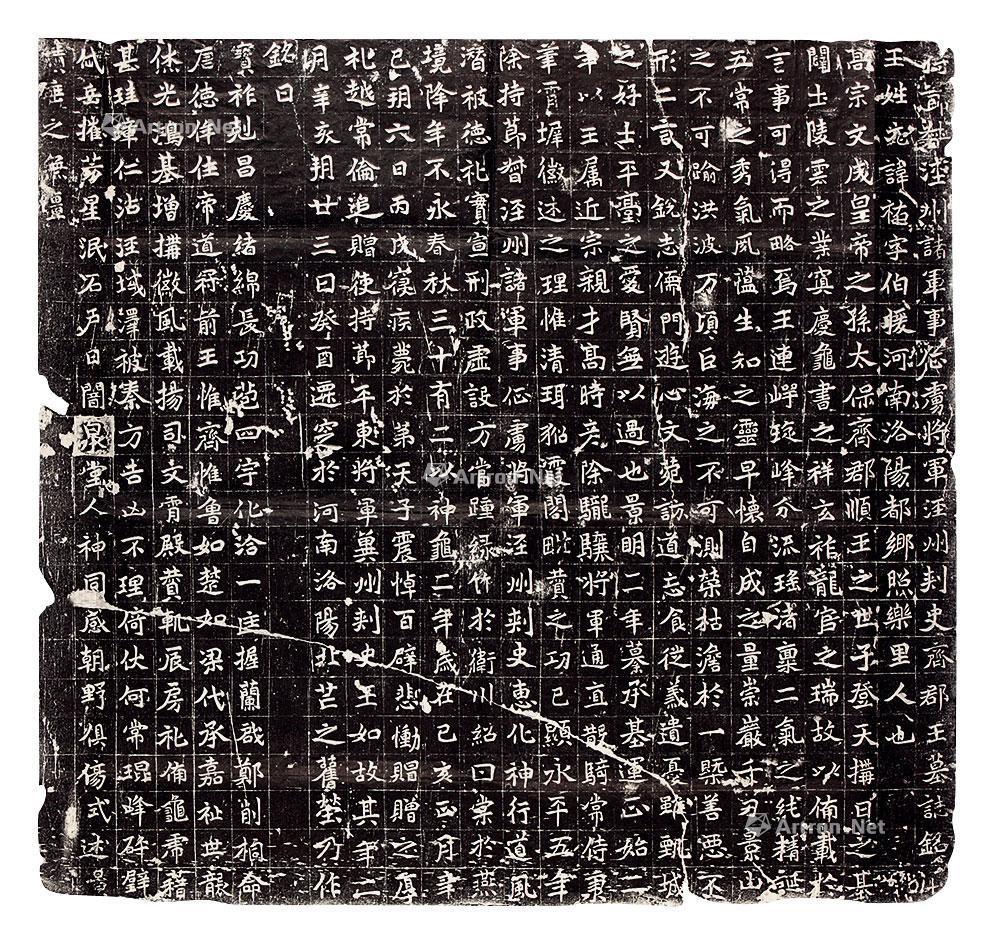 持節督涇州諸軍事征虜將軍涇州刺史齊郡王墓誌銘并
王姓元諱祐字伯援河南洛陽都鄉照樂里人也
高宗文成皇帝之孫太保齊郡順王之世子登天搆日之基
闢土陵雲之業寘慶龜書之祥玄祚龍官之瑞故以備載於
言事可得而略焉王連崿峰分流瑤渚稟二氣之純精誕
五常之秀氣夙蘊生知之靈早懷自成之量崇巖千刃景山
之不可踰洪波万頃巨海之不可測榮枯澹於一槩善惡不
形二言又銳志儒門遊心文苑訪道忘食從義遺憂雖甄城
之好士平臺之愛賢無以過也景明二年纂承基運正始二
年以王属近宗親才髙時彦除驪驤將軍通直散騎常侍秉
筆霄墀徽述之理惟清珥貂霞閣毗賛之功已顯永平五年
除持節督涇州諸軍事征虜將軍涇州刺史惠化神行道風
潛被德礼實宣刑政虛設方當踵緑竹於衛川紹曰棠於燕
境降年不永春秋三十有二以神龜二年歲在己亥正月辛
巳朔六日丙戌寑疾薨於第天子震悼百辟悲慟賵贈之厚
礼越常倫追贈使持節平東將軍冀州刺史王如故其年二
月辛亥朔廿三日癸酉遷窆於河南洛陽北芒之舊塋乃作
銘曰
寳祚剋昌慶緒綿長功苞四宇化洽一匡握蘭啟鄭削桐命
唐德侔往帝道冠前王惟齊惟魯如楚如梁代承嘉祉世龍
休光鴻基增搆徽風載揚司文霄殿賛軌辰房礼備龜帛藉
甚珪璋仁沾涇域澤被秦方吉凶不理倚伏何常琨峰碎璧
岱岳摧芳星泯石戸日闇泉堂人神同慼朝野俱傷式述景
績垂之無畺
Artron.Net
Artron.Net
Artron.Net